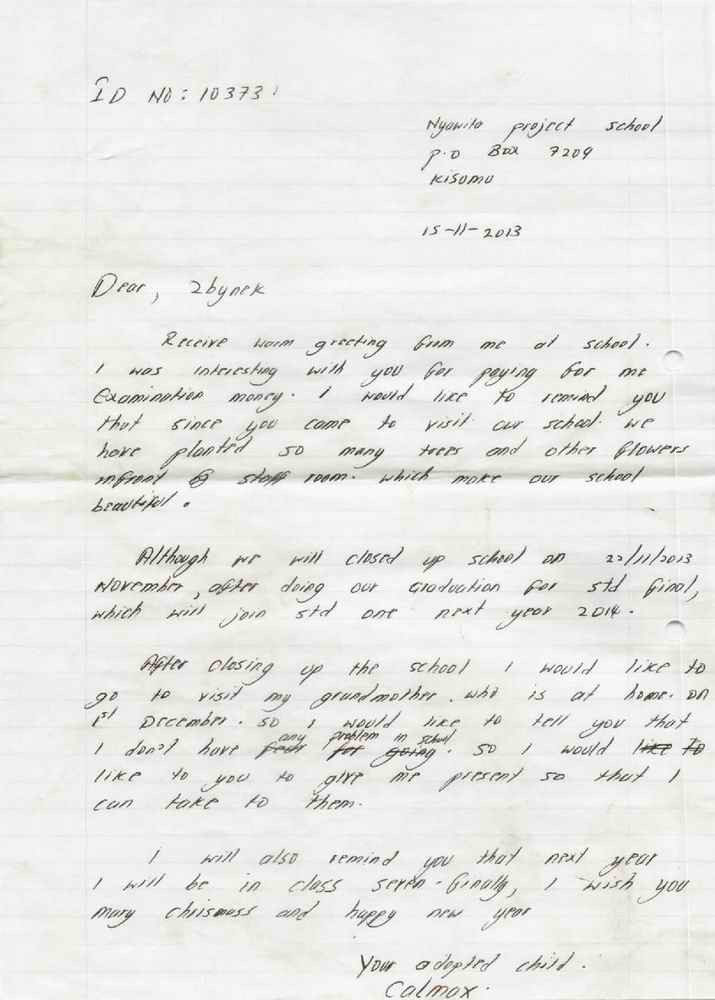 ID NO: 10373
Nyawita project school
P.O Box 7209
Kisumu
15-11-2013
Dear, Zbynek
Receive warm greeting from me at school.
I was interesting with you for paying for me
Examination money. I would like to remind you
that since you came to visit our school. we
have planted so many trees and other flowers
infront of staff room. which make our school
beautiful.
Although we will closed up school on 22/11/2013
November, after doing our Graduation for std final,
which will join std one next year 2014.
After closing up the school I would like to
go to visit my grandmother. who is at home. on
1st December. so I would like to tell you that
any problem in school
I don't have for going. so I would like to
like to you to give me present so that I
can take to them.
I will also remind you that next year
I will be in class seven. finally, I wish you
mary chrismass and happy new year
Your adopted child.
Calmax.